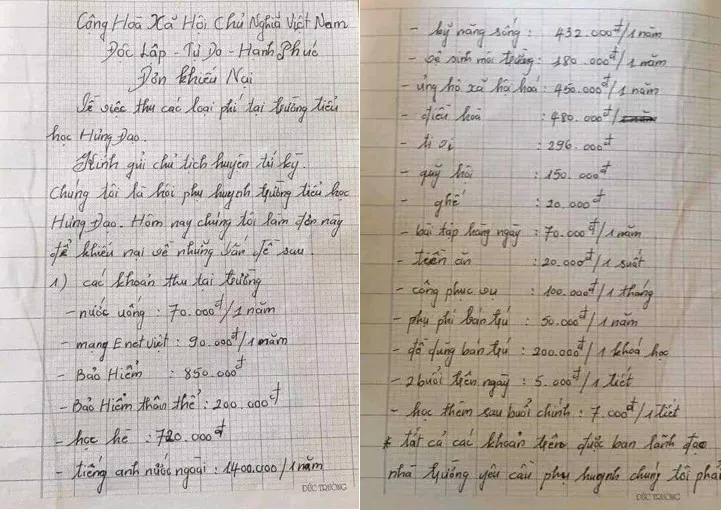 Công Hoà Xã Hội Chủ Nghĩa Việt Nam
Độc Lập - Tự Do - Hạnh Phúc
Đơn Khiếu Nại
Về việc thu các loại phí tại trường tiểu
học Hưng Đạo.
Kính gửi chủ tịch huyện tứ kỳ.
Chúng tôi là hội phụ huynh trường tiểu học
Hưng Đạo. Hôm nay chúng tôi làm đơn này
để khiếu nại về những vấn đề sau.
1) các khoản thu tại trường
- nước uống : 70.000đ/1 năm
- mạng Enetviet : 90.000đ/1 năm
- Bảo Hiểm : 850.000đ
- Bảo Hiểm thân thể : 200.000đ
- học hè : 720.000đ
- tiếng anh nước ngoài : 1400.000/1 năm
ĐỨC TRƯỜNG
- kỹ năng sống : 432.000đ/1 năm
- vệ sinh môi trường : 180.000đ/1 năm
- ủng hộ xã hội hoá : 450.000đ/1 năm
- điều hoà : 480.000đ/
- ti vi : 296.000đ
- quỹ hội : 150.000đ
- ghế : 20.000đ
- bài tập hàng ngày : 70.000đ/1 năm
- tiền ăn : 20.000đ/1 suất
- công phục vụ : 100.000đ/1 tháng
- phụ phí bán trú : 50.000đ/1 năm
- đồ dùng bán trú : 200.000đ/1 khoá học
- 2 buổi trên ngày : 5.000đ/1 tiết
- học thêm sau buổi chính : 7.000đ/1 tiết
* tất cả các khoản trên được ban lãnh đạo
nhà trường yêu cầu phụ huynh chúng tôi phải
ĐỨC TRƯỜNG